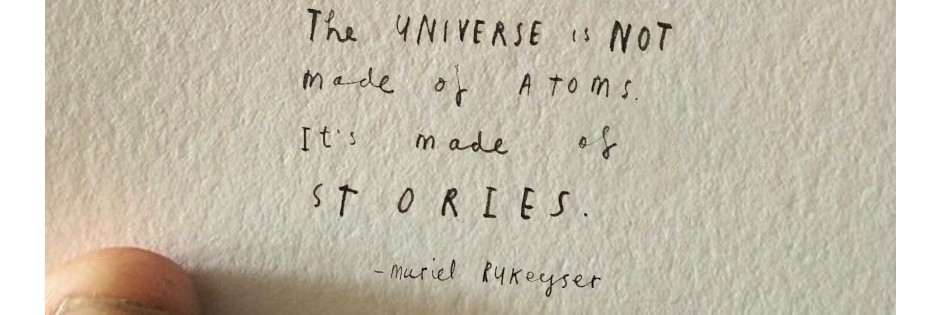 The UNIVERSE is NOT
made of ATOMS.
It's made of
STORIES.
-muriel RyKeyser